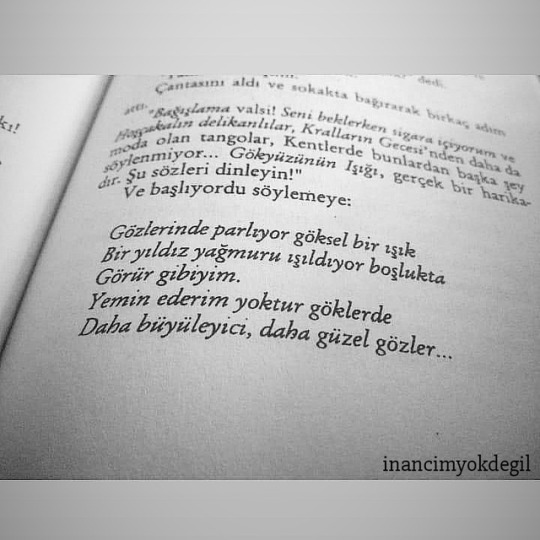 dedi.
Çantasını aldı ve sokakta bağırarak birkaç adım
attı.
"Bağışlama valsi! Seni beklerken sigara içiyorum ve
Hoşçakalın delikanlılar, Kralların Gecesi'nden daha da
moda olan tangolar, Kentlerde bunlardan başka şey
söylenmiyor... Gökyüzünün Işığı, gerçek bir harika-
dır. Şu sözleri dinleyin!"
Ve başlıyordu söylemeye:
Gözlerinde parlıyor göksel bir ışık
Bir yıldız yağmuru ışıldıyor boşlukta
Görür gibiyim.
Yemin ederim yoktur göklerde
Daha büyüleyici, daha güzel gözler...
inancimyokdegil